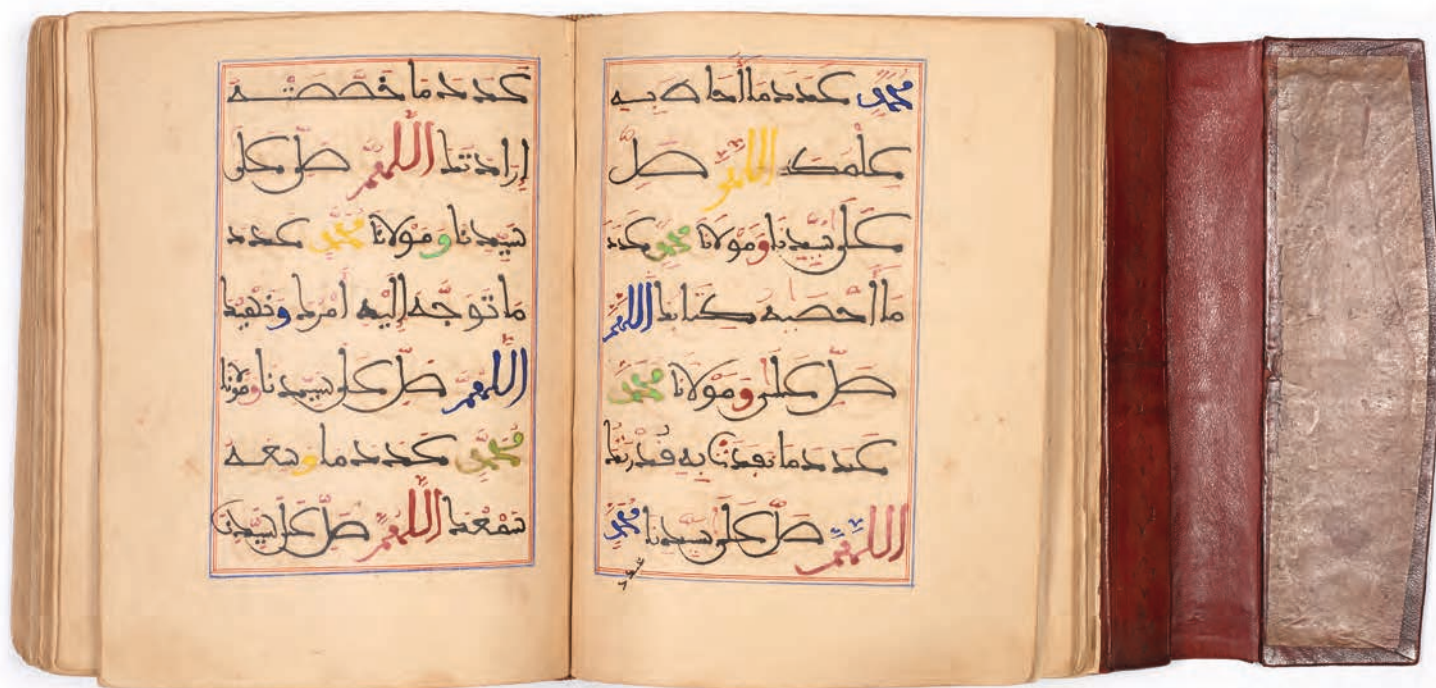 محمد عدد ما أحاط به
علمك اللهم صل
على سيدنا ومولانا محمد عدد
ما أحصىه كتابك اللهم
صل على ومولانا محمد
عدد ما نفذت به قدرتك
اللهم صل على سيدنا محمد
عدد
عدد ما خصصته
إرادتك اللهم صل على
سيدنا ومولانا محمد عدد
ما توجه إليه أمرك ونهيك
اللهم صل على سيدنا ومولانا
محمد عدد ما وسعه
سمعك اللهم صل على سيدنا